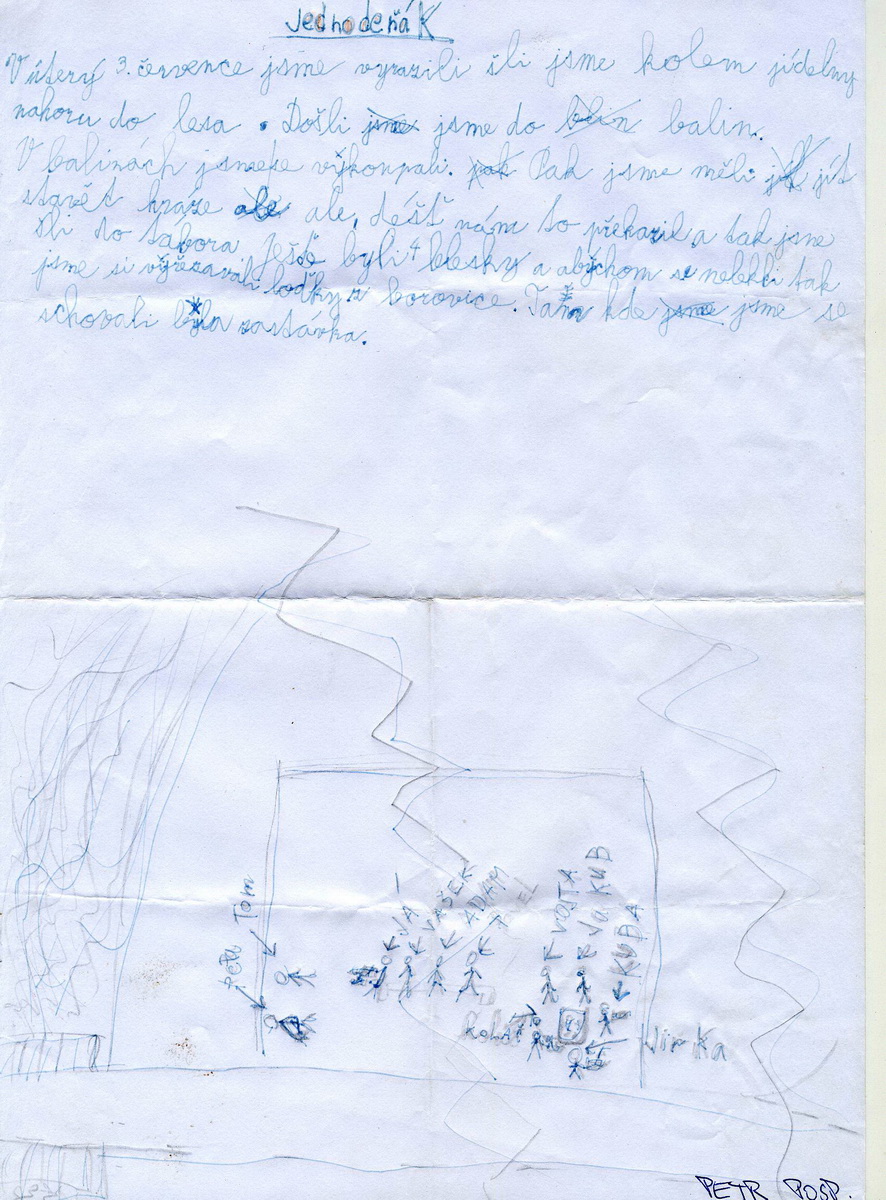 Jednodeňák
V úterý 3. července jsme vyrazili šli jsme kolem jídelny
nahoru do lesa. Došli jsme jsme do balin.
V balinách jsme se vykoupali. pak Pak jsme měli jít jít
stavět hráze ale ale, déšť nám to překazil a tak jsme
šli do tábora. Ještě byli 4 blesky a abychom se nelekli tak
jsme si vyřezavali loďky z borovice. Tam kde jsme jsme se
schovali byla zastávka.
Petr Tom
JÁ
VAŠEK
ADAM
VOJTA
JAKUB
KUBA
Jirka
PETR POSP.